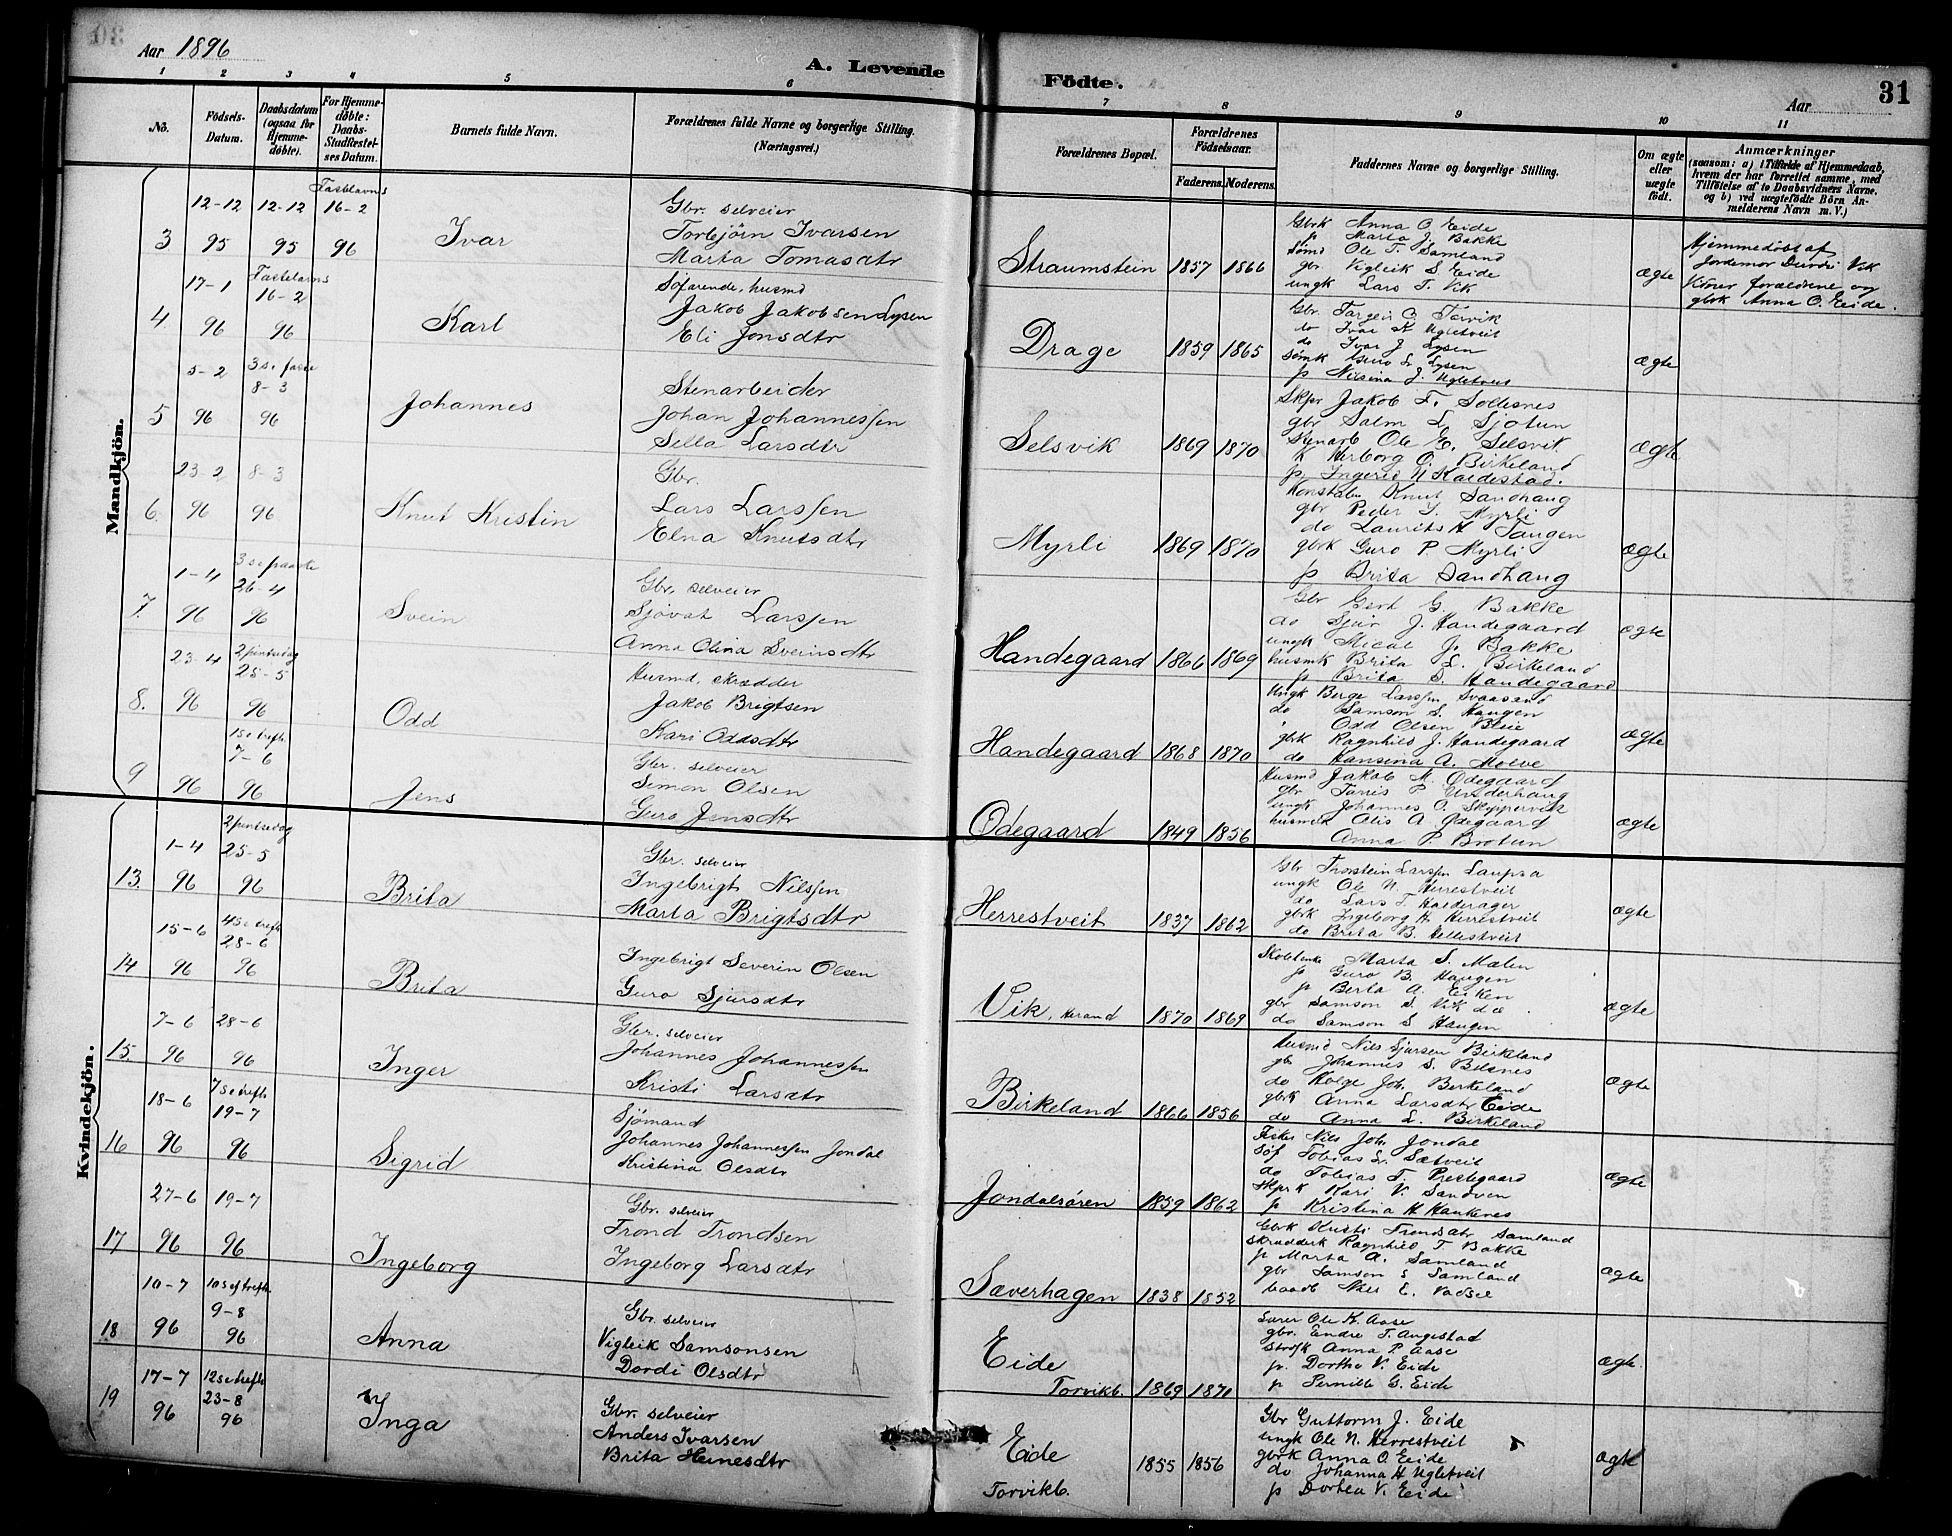 Aar 1896
A. Levende Födte.
Aar
31
1 2 3 4 5 6 7 8 9 10 11
No.
Födsels-Datum.
Daabsdatum (ogsaa for Hjemmedöbte).
For Hjemmedöbte: Daabs-Stadfæstelses Datum.
Barnets fulde Navn.
Forældrenes fulde Navne og borgerlige Stilling. (Næringsvei.)
Forældrenes Bopæl.
Forældrenes Födselsaar.
Faderens. Moderens.
Faddernes Navne og borgerlige Stilling.
Om ægte eller uægte födt.
Anmærkninger
(saasom: a) i Tilfælde af Hjemmedaab, hvem der har forrettet samme, med Tilföielse af to Daabsvidners Navne, og b) ved uægtefödte Börn Anmelderens Navn m. V.)
Mandkjön.
3 12-12 95 12-12 95 Fastelavns 16-2 96
Ivar
Gbr. selveier
Torbjörn Ivarsen
Marta Tomasdtr
Straumstein 1857 1866
Gbrk Anna O. Eide
p Marta J. Bakke
sømd Ole T. Samland
gbr Vigleik S Eide
ungk Lars T. Vik
ægte
Hjemmedöbt af
Jordemor Durdei Vik
Vitner forældrene og
gbrk Anna O. Eide.
4 17-1 96 Fastelavns 16-2 96
Karl
Søfarende, husmd
Jakob Jakobsen Lysen
Eli Jonsdtr
Drage 1859 1865
Gbr. Torgeir O Torvik
do Ivar K Ugletveit
do Ivar J Lysen
sömk Guro L Lysen
p Nilsina J. Ugletveit
ægte
5 5-2 96 3 s i faste 8-3 96
Johannes
Stenarbeider
Johan Johannessen
Sella Larsdtr
Selsvik 1869 1870
Skpr Jakob T. Soldesnes
gbr Salm L Sjotun
stenarb Ole E. Selsvik
K Herborg O. Birkeland
p Ingerid N. Kaldestad.
ægte
6. 23-2 96 8-3 96
Knut Kristin
Gbr.
Lars Larssen
Elna Knutsdtr
Myrli 1869 1870
Konstabu Knut Sandhaug
gbr Peder S. Myrli
do Laurits H Tangen
gbrk Guro P Myrli
p Brita Sandhaug
ægte
7. 1-4 96 3 s e paaske 26-4 96
Svein
Gbr. selveier
Sjovat Larssen
Anna Olina Sveinsdtr
Handegaard 1866 1869
Gbr Gert G. Bakke
do Sjur J. Handegaard
ungk Micael J. Bakke
husmk Brita L. Birkeland
p Brita S. Handegaard
ægte
8. 23-4 96 2 pintsedag 25-5 96
Odd
Husmd, skrædder
Jakob Brigtsen
Kari Oddsdtr
Handegaard 1868 1870
Ungk Berge Larssen Svaasand
do Samson S. Haugen
Odd Olsen Bleie
gbrk Ragnhild J. Handegaard
do Hansina A. Melve
ægte
9 96 1 s e trefh. 7-6 96
Jens
Gbr. selveier
Simon Olsen
Guro Jensdtr
Ödegaard 1849 1856
Husmd Jakob M. Ödegaard
gbr Torris P. Underhaug
ungk Johannes O. Skippervik
husmk Olis A Ödegaard
Anna P. Brotun
ægte
Kvindekjön.
13. 1-4 96 2 pintsedag 25-5 96
Brita
Gbr. selveier
Ingebrigt Nilssen
Marta Brigtsdtr
Herrestveit 1837 1862
Gbr Torstein Larssen Laupsa
ungk Ole N. Herrestveit
do Lars T. Halderager
gbrk Ingeborg H Herrestveit
do Brita B. Hellestveit
ægte
14 15-6 96 4 s e trefh 28-6 96
Brita
Ingebrigt Severin Olsen
Guro Sjursdtr
Vik, Herand 1870 1869
Marta S. Mælen
p Guro B. Haugen
p Berta A. Eiken
gbr Samson S Vik d.æ
do Samson S Haugen
ægte
15. 7-6 96 28-6 96
Inger
Gbr. selveier
Johannes Johannessen
Kristi Larsdtr
Birkeland 1866 1856
Husmd Nils Sjursen Birkeland
gbr Johannes S. Belsnes
do Helge Joh. Berkeland
gbrk Anna Larsdtr Eide
do Anna L. Birkeland
ægte
16 18-6 96 7 s e trefh 19-7 96
Sigrid
Sjömand
Johannes Johannessen Jondal
Kristina Olsdtr
Jondalsören 1859 1862
Fisker Nils Joh. Jondal
Söf Tobias L. Sætveit
do Tobias T. Prestegaard
skprk Kari V. Sandven
p Kristina H Haukenes
ægte
17 27-6 96 19-7 96
Ingeborg
Gbr. selveier
Trond Trondsen
Ingeborg Larsdtr
Sæverhagen 1838 1852
Gbrk Kristi Trondsdtr Samland
skrædderk Ragnhild T. Bakke
p Marta A. Samland
gbr Samson S Samland
baadb Nils E. Vadsel
ægte
18 10-7 96 10 s eftrefh. 9-8 96
Anna
Gbr. selveier
Vigleik Samsonsen
Dordi Olsdtr
Eide Torvikb. 1869 1870
Lærer Ole K. Aase
gbr. Endre T. Augestad
Anna P. Aase
p. Dorthe V. Eide
p Pernille G. Eide
ægte.
19 17-7 96 12 s e trefh 23-8 96
Inga
Gbr. selveier
Anders Ivarsen
Brita Heinesdtr
Eide Torvikb. 1855 1856
Gbr Guttorm J. Eide
ungk Ole N. Herrestveit
gbrk Anna O. Eide
do Johanna H Ugletveit
p Dorhea V. Eide
ægte